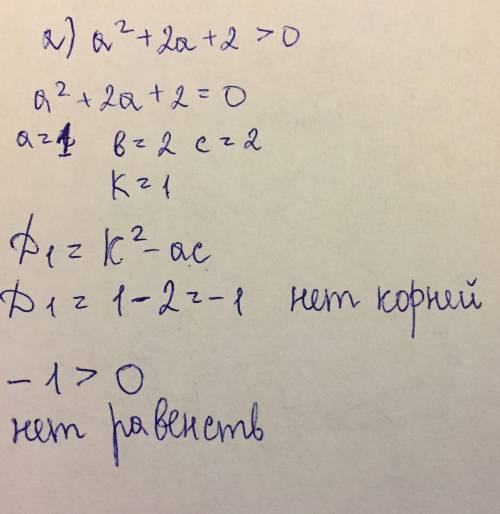 а) a² + 2a + 2 > 0
a² + 2a + 2 = 0
a = 1 в = 2 c = 2
K = 1
D₁ = K² - ac
D₁ = 1 - 2 = -1 нет корней
- 1 > 0
нет равенств